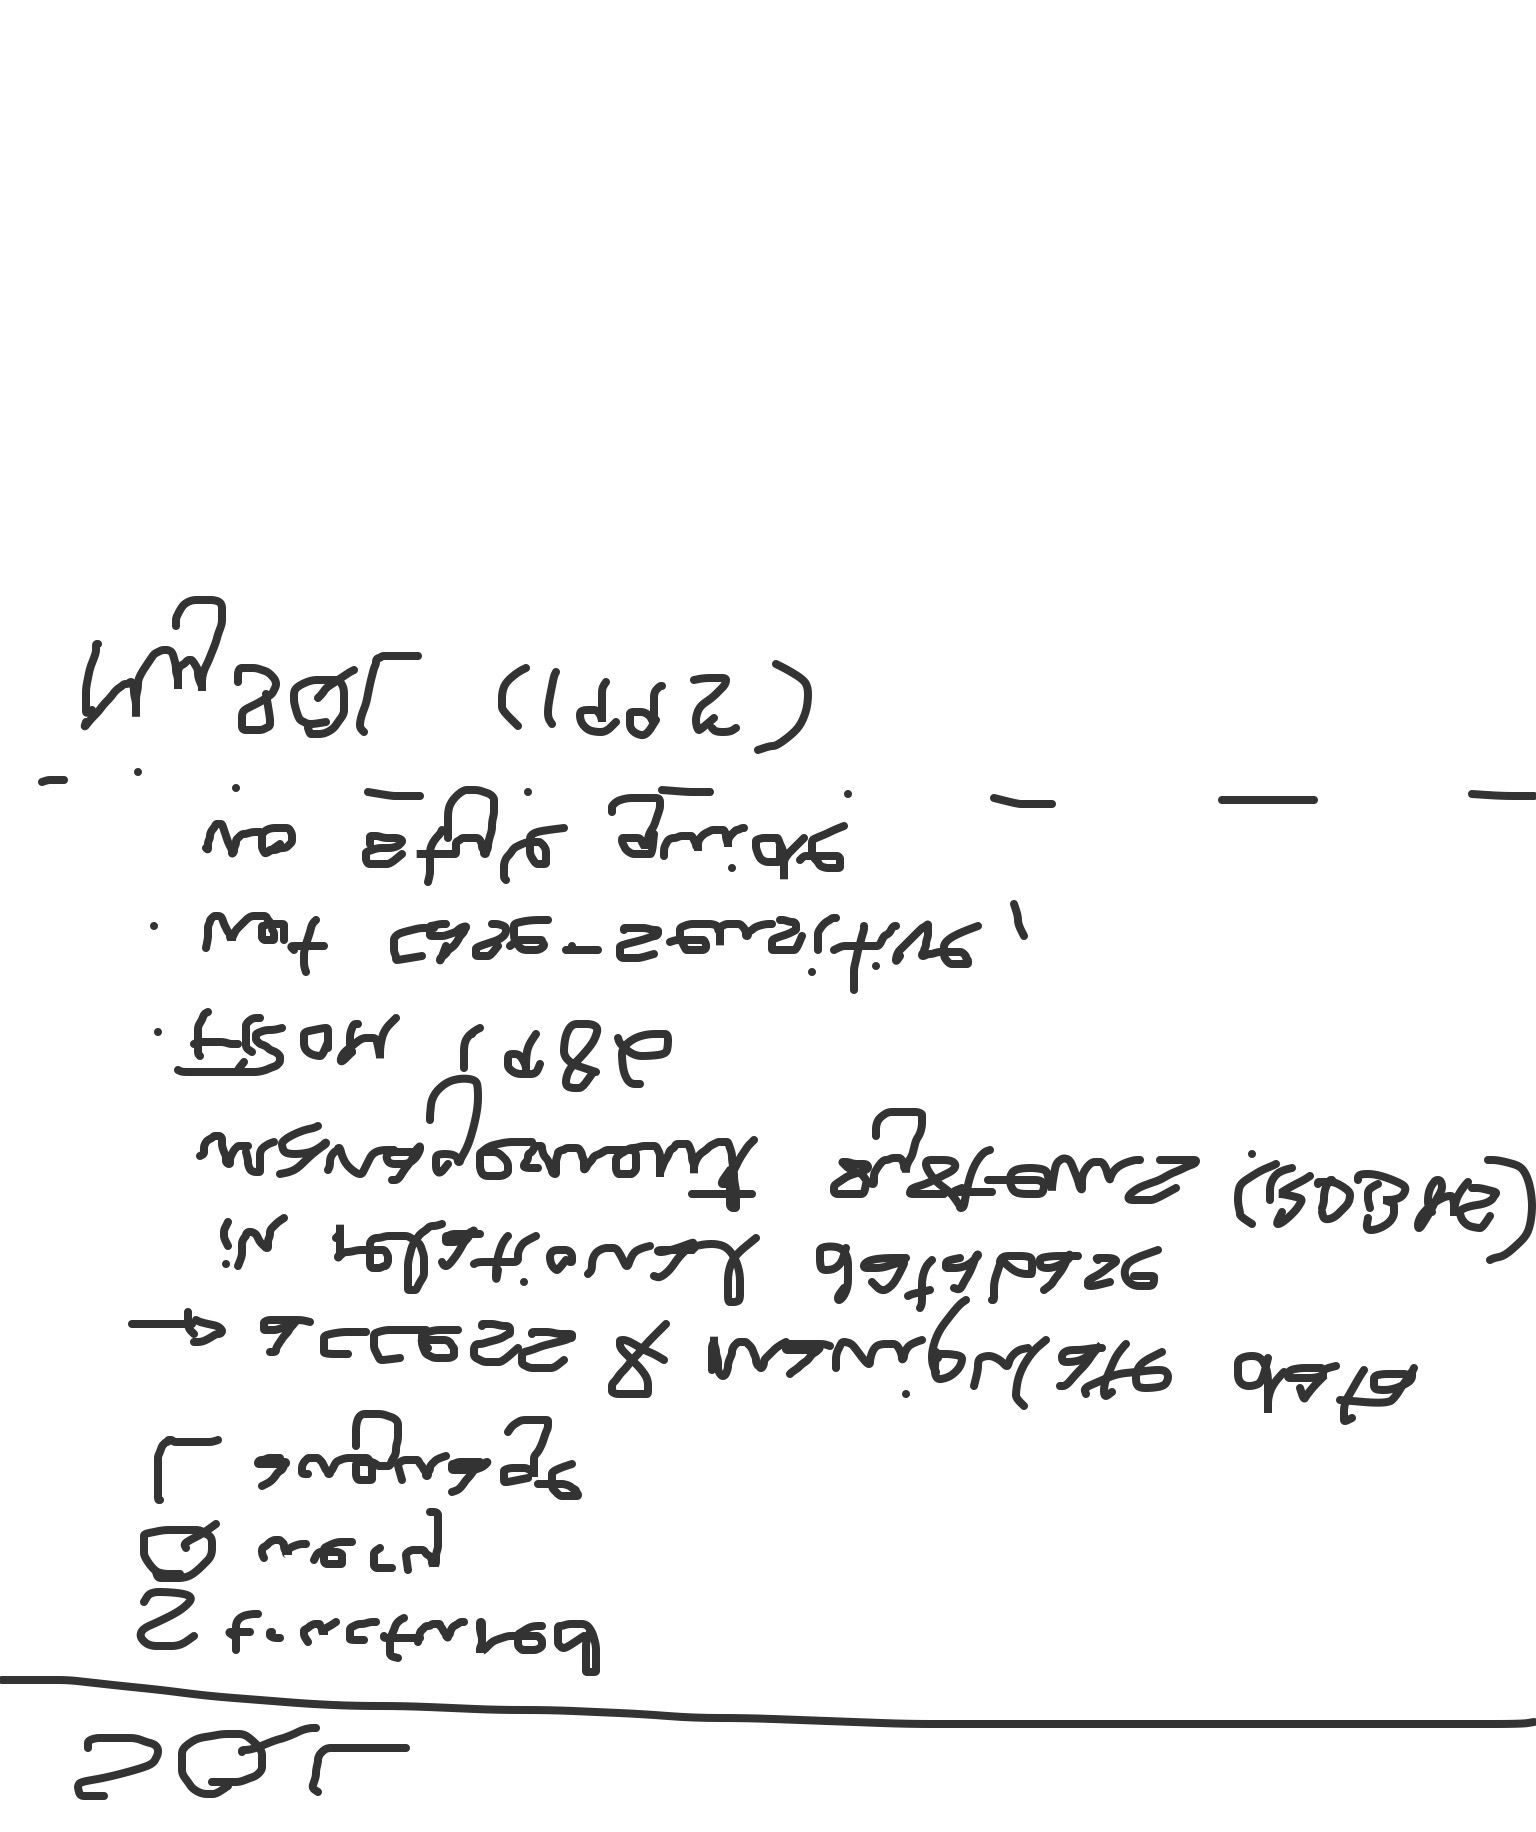 SQL
Structured
Query
Language
→ access & manipulate data
in relational database
management systems (RDBMS)
. FROM 1986
. not case-sensitive,
no style guide
MySQL (1995)